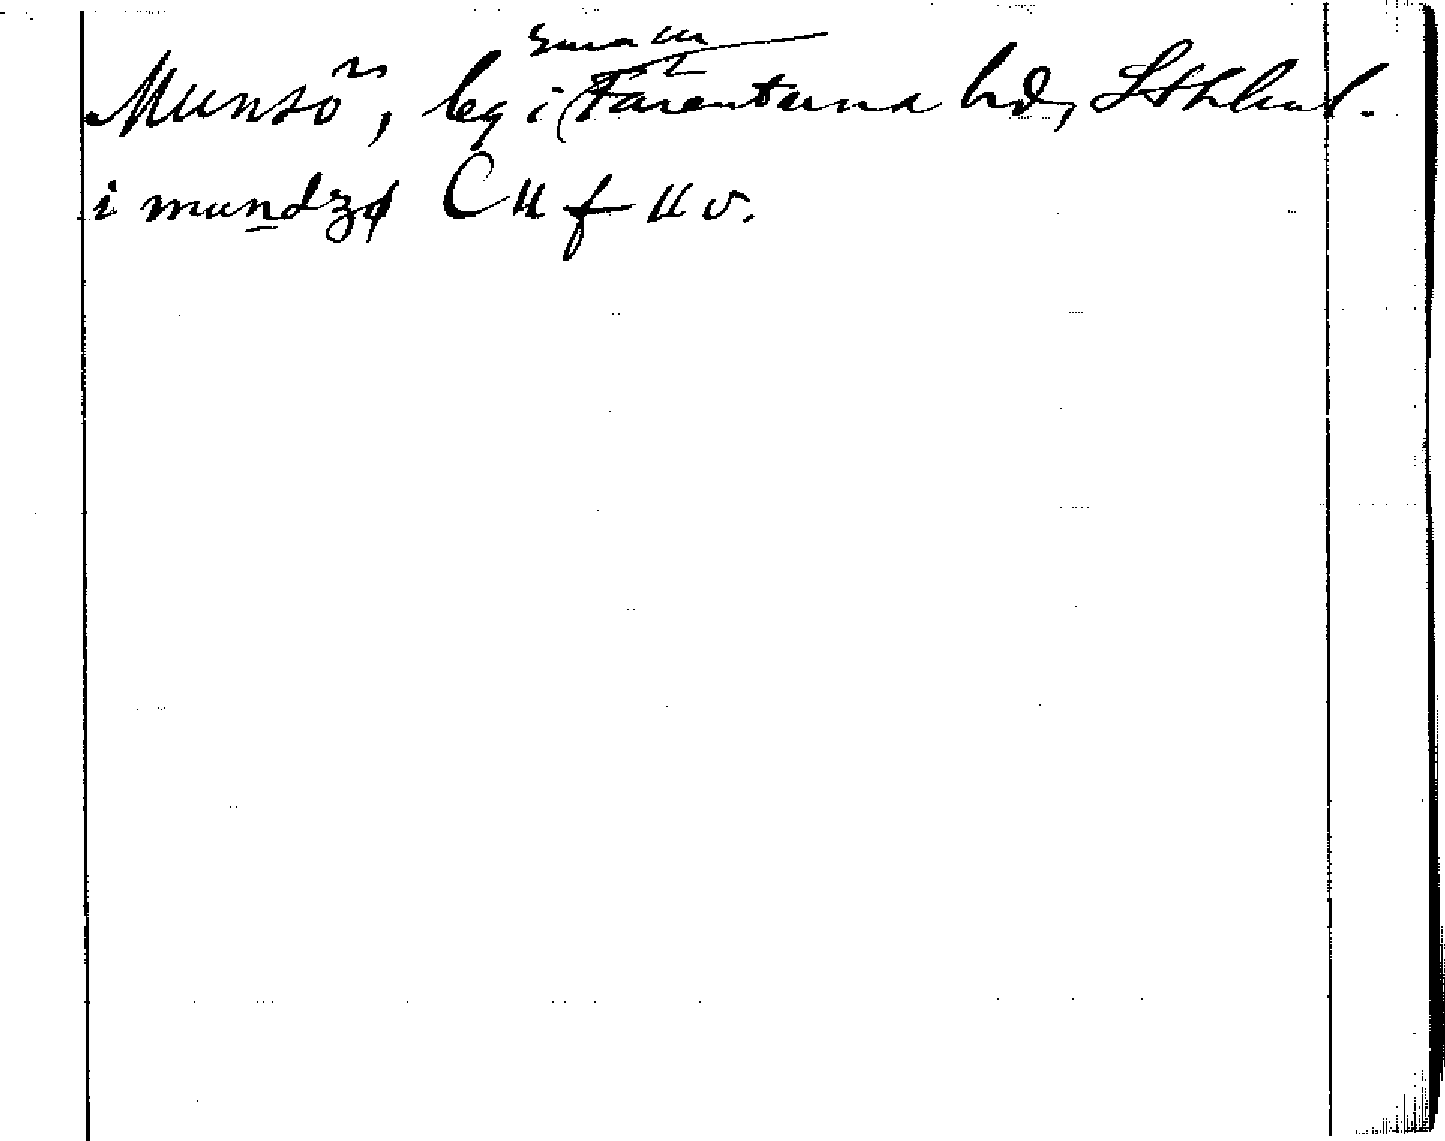 Munsö, by i Färentuna hd, Sthlms l.
i mundzø C II f II v.